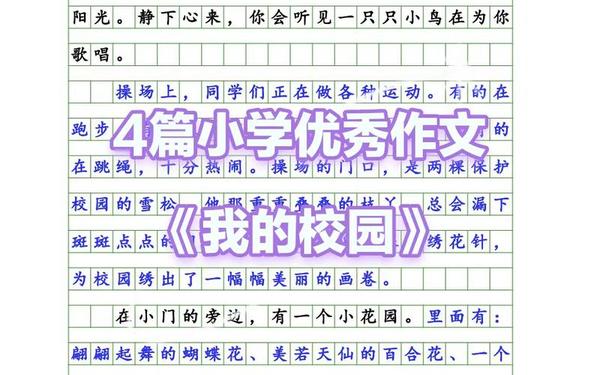 阳光。静下心来，你会听见一只只小鸟在为你
歌唱。
操场上，同学们正在做各种运动。有的在
跑步
的
4篇小学优秀作文
在跳绳，十分热闹。操场的门口，是两棵保护
校园的雪松，他那重重叠叠的枝丫，总会漏下
《我的校园》
斑斑点点的
绣花针，
为校园绣出了一幅幅美丽的画卷。
在小门的旁边，有一个小花园。里面有：
翩翩起舞的蝴蝶花、美若天仙的百合花、一个